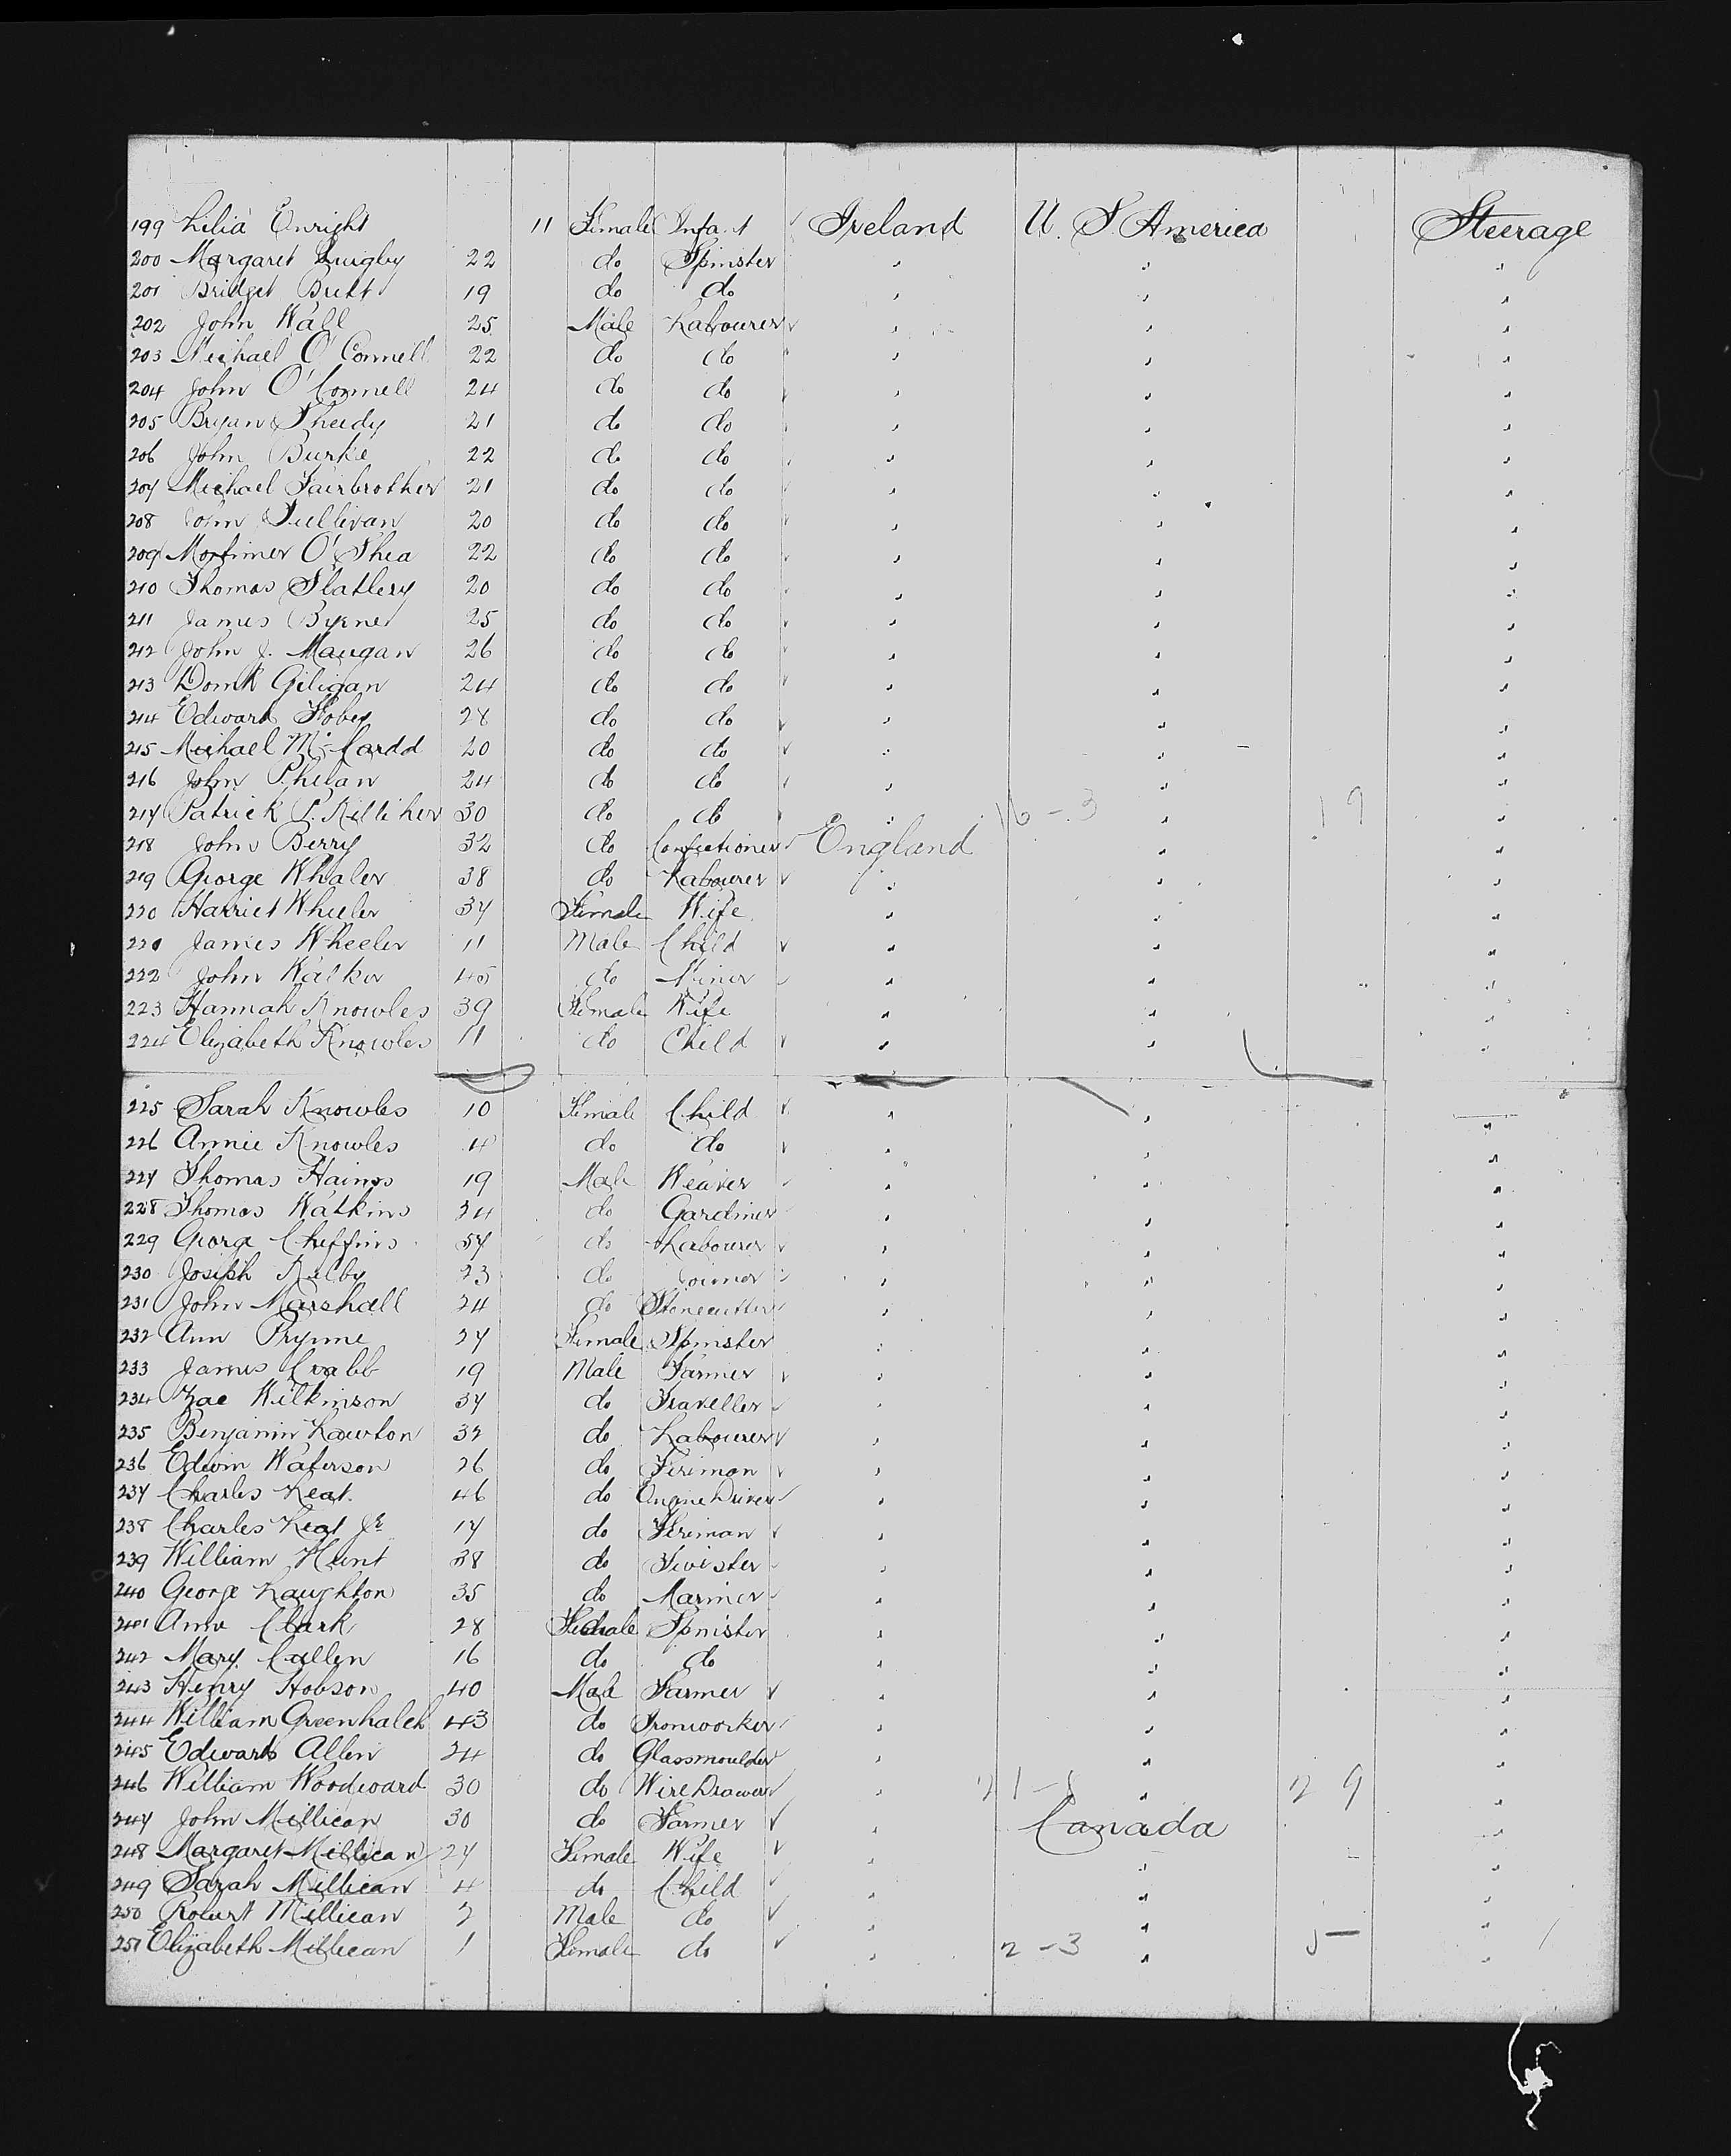 199 Lilia Enright 11 Female Infant Ireland U. S. America Steerage
200 Margaret Quigley 22 do Spinster " " "
201 Bridget Brett 19 do do " " "
202 John Wall 25 Male Labourer " " "
203 Michael O'Connell 22 do do " " "
204 John O'Connell 24 do do " " "
205 Bryan Sheedy 21 do do " " "
206 John Burke 22 do do " " "
207 Michael Fairbrother 21 do do " " "
208 John Sullivan 20 do do " " "
209 Mortimer O'Shea 22 do do " " "
210 Thomas Slattery 20 do do " " "
211 James Byrne 25 do do " " "
212 John J. Mangan 26 do do " " "
213 Domk Giligan 24 do do " " "
214 Edward 28 do do " " "
215 Michael Mc Cardd 20 do do " " "
216 John Phelan 24 do do " " "
217 Patrick P. Killiher 30 do do " 16-3 " 19 "
218 John Berry 32 do Confectioner England " "
219 George Whaler 38 do Labourer " " "
220 Harriet Wheeler 37 Female Wife " " "
221 James Wheeler 11 Male Child " " "
222 John Walker 45 do Miner " " "
223 Hannah Knowles 39 Female Wife " " "
224 Elizabeth Knowles 11 do Child " " "
225 Sarah Knowles 10 Female Child " " "
226 Annie Knowles 4 do do " " "
227 Thomas Hains 19 Male Weaver " " "
228 Thomas Watkins 34 do Gardiner " " "
229 George Cheffins 57 do Labourer " " "
230 Joseph 23 do Joiner " " "
231 John Marshall 24 do Stonecutter " " "
232 Ann Prynne 27 Female Spinster " " "
233 James Crabb 19 Male Farmer " " "
234 Zac Wilkinson 37 do Traveller " " "
235 Benjamin Lawton 32 do Labourer " " "
236 Edwin Waterson 26 do Fireman " " "
237 Charles Leat 46 do Engine Driver " " "
238 Charles Leat Jr 17 do Fireman " " "
239 William Hunt 38 do Twister " " "
240 George Laughton 35 do Mariner " " "
241 Ann Clark 28 Female Spinster " " "
242 Mary Cullen 16 do do " " "
243 Henry Hobson 40 Male Farmer " " "
244 William Greenhalch 43 do Ironworker " " "
245 Edward Allen 24 do Glassmoulder " " "
246 William Woodward 30 do Wire Drawer " " 29 "
247 John Millican 30 do Farmer " Canada "
248 Margaret Millican 27 Female Wife " " "
249 Sarah Millican 4 do Child " " "
250 Robert Millican 2 Male do " " "
251 Elizabeth Millican 1 Female do " 2-3 " 5 "